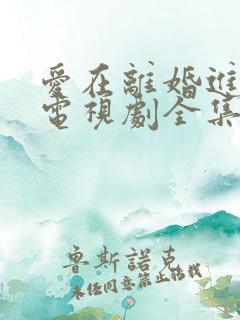 愛在離婚進
電視劇全集
魯斯諾克
未经同意禁止转载